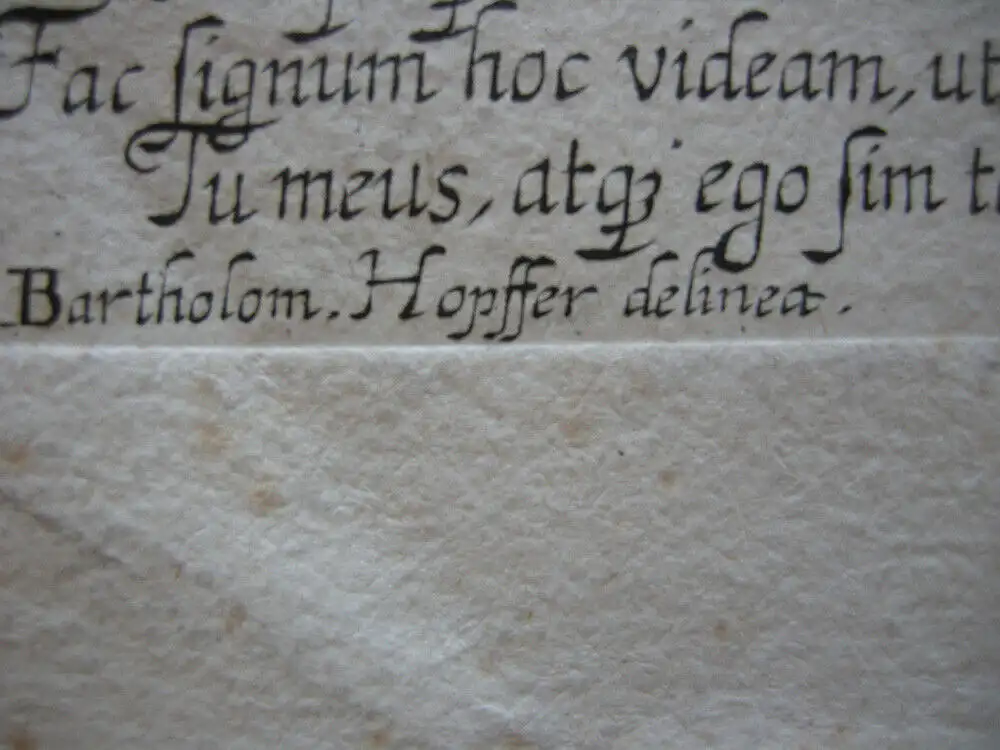 Fac ſignum hoc videam, ut
Tu meus, atq₃ ego ſim
Bartholom. Hopffer delinea.